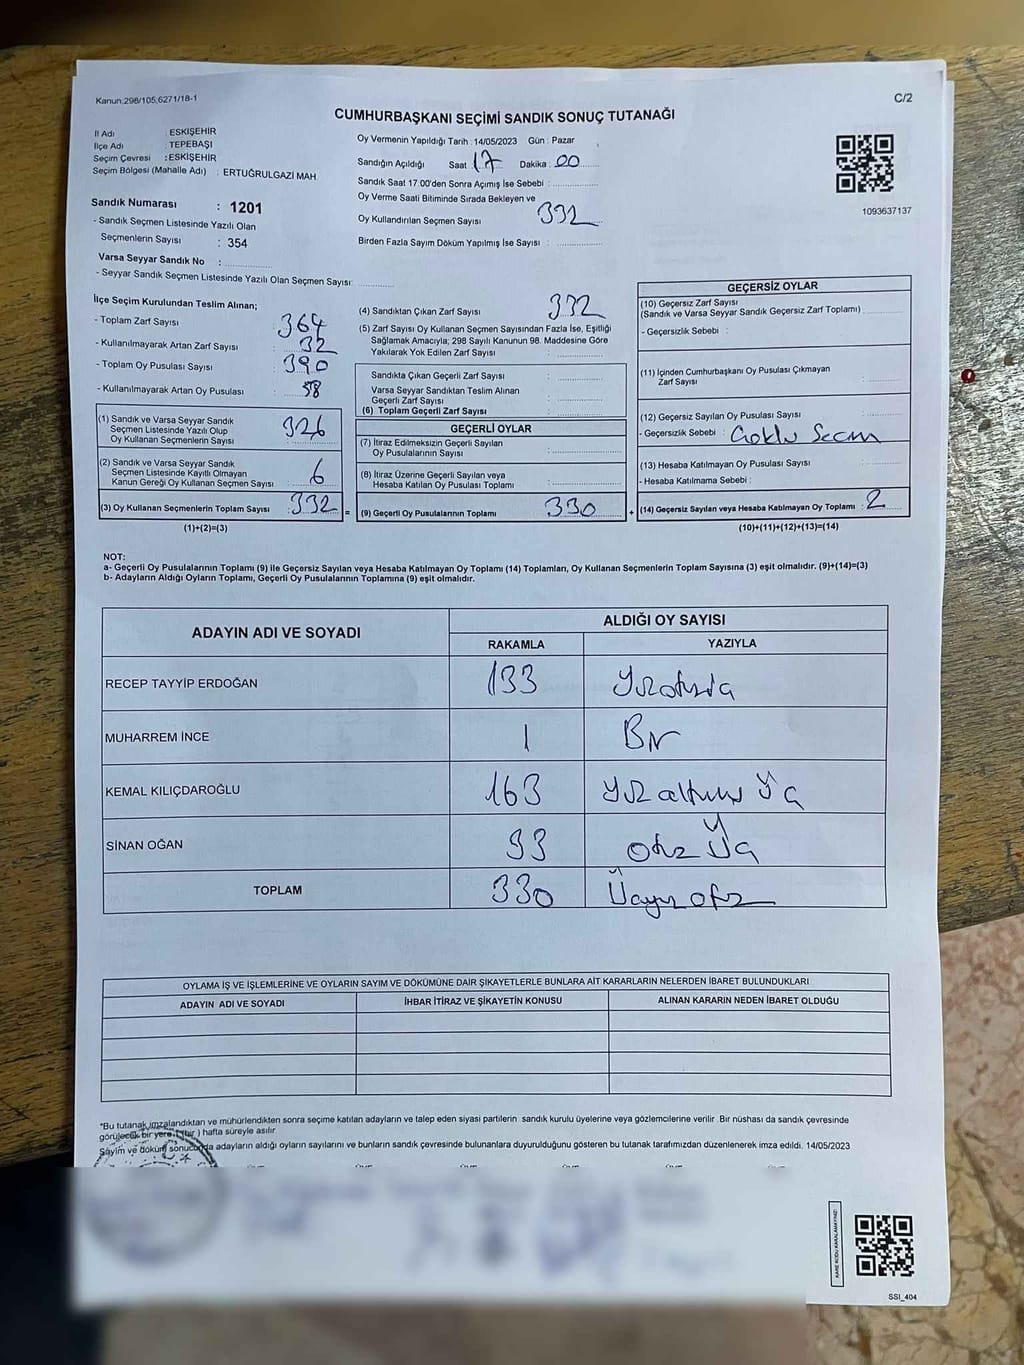 Kanun.298/105,6271/18-1
C/2
CUMHURBAŞKANI SEÇİMİ SANDIK SONUÇ TUTANAĞI
İl Adı : ESKİŞEHİR
İlçe Adı : TEPEBAŞI
Seçim Çevresi : ESKİŞEHİR
Seçim Bölgesi (Mahalle Adı) : ERTUĞRULGAZİ MAH.
Oy Vermenin Yapıldığı Tarih : 14/05/2023 Gün : Pazar
Sandığın Açıldığı Saat 17 Dakika : 00
Sandık Saat 17:00'den Sonra Açımış İse Sebebi :
Oy Verme Saati Bitiminde Sırada Bekleyen ve
Oy Kullandırılan Seçmen Sayısı 332
Birden Fazla Sayım Döküm Yapılmış İse Sayısı :
1093637137
Sandık Numarası : 1201
- Sandık Seçmen Listesinde Yazılı Olan
Seçmenlerin Sayısı : 354
Varsa Seyyar Sandık No :
- Seyyar Sandık Seçmen Listesinde Yazılı Olan Seçmen Sayısı:
İlçe Seçim Kurulundan Teslim Alınan;
- Toplam Zarf Sayısı : 364
- Kullanılmayarak Artan Zarf Sayısı : 32
- Toplam Oy Pusulası Sayısı : 390
- Kullanılmayarak Artan Oy Pusulası : 58
(1) Sandık ve Varsa Seyyar Sandık
Seçmen Listesinde Yazılı Olup
Oy Kullanan Seçmenlerin Sayısı : 326
(2) Sandık ve Varsa Seyyar Sandık
Seçmen Listesinde Kayıtlı Olmayan
Kanun Gereği Oy Kullanan Seçmen Sayısı : 6
(3) Oy Kullanan Seçmenlerin Toplam Sayısı : 332
(1)+(2)=(3)
=
(4) Sandıktan Çıkan Zarf Sayısı : 332
(5) Zarf Sayısı Oy Kullanan Seçmen Sayısından Fazla İse, Eşitliği
Sağlamak Amacıyla; 298 Sayılı Kanunun 98. Maddesine Göre
Yakılarak Yok Edilen Zarf Sayısı :
Sandıkta Çıkan Geçerli Zarf Sayısı :
Varsa Seyyar Sandıktan Teslim Alınan
Geçerli Zarf Sayısı :
(6) Toplam Geçerli Zarf Sayısı :
GEÇERLİ OYLAR
(7) İtiraz Edilmeksizin Geçerli Sayılan
Oy Pusulalarının Sayısı :
(8) İtiraz Üzerine Geçerli Sayılan veya
Hesaba Katılan Oy Pusulası Toplamı :
(9) Geçerli Oy Pusulalarının Toplamı : 330
+
GEÇERSİZ OYLAR
(10) Geçersiz Zarf Sayısı
(Sandık ve Varsa Seyyar Sandık Geçersiz Zarf Toplamı)
- Geçersizlik Sebebi :
(11) İçinden Cumhurbaşkanı Oy Pusulası Çıkmayan
Zarf Sayısı :
(12) Geçersiz Sayılan Oy Pusulası Sayısı :
- Geçersizlik Sebebi : Çoklu Seçim
(13) Hesaba Katılmayan Oy Pusulası Sayısı :
- Hesaba Katılmama Sebebi :
(14) Geçersiz Sayılan veya Hesaba Katılmayan Oy Toplamı : 2
(10)+(11)+(12)+(13)=(14)
NOT:
a- Geçerli Oy Pusulalarının Toplamı (9) ile Geçersiz Sayılan veya Hesaba Katılmayan Oy Toplamı (14) Toplamları, Oy Kullanan Seçmenlerin Toplam Sayısına (3) eşit olmalıdır. (9)+(14)=(3)
b- Adayların Aldığı Oyların Toplamı, Geçerli Oy Pusulalarının Toplamına (9) eşit olmalıdır.
ADAYIN ADI VE SOYADI
ALDIĞI OY SAYISI
RAKAMLA YAZIYLA
RECEP TAYYİP ERDOĞAN 133
MUHARREM İNCE 1 Bir
KEMAL KILIÇDAROĞLU 163 Yüz altmış Üç
SİNAN OĞAN 33 otuz Üç
TOPLAM 330 Üçyüz otuz
OYLAMA İŞ VE İŞLEMLERİNE VE OYLARIN SAYIM VE DÖKÜMÜNE DAİR ŞİKAYETLERLE BUNLARA AİT KARARLARIN NELERDEN İBARET BULUNDUKLARI
ADAYIN ADI VE SOYADI İHBAR İTİRAZ VE ŞİKAYETİN KONUSU ALINAN KARARIN NEDEN İBARET OLDUĞU
*Bu tutanak imzalandıktan ve mühürlendikten sonra seçime katılan adayların ve talep eden siyasi partilerin sandık kurulu üyelerine veya gözlemcilerine verilir .Bir nüshası da sandık çevresinde
görülecek bir yere 1 (bir ) hafta süreyle asılır.
Sayım ve döküm sonucunda adayların aldığı oyların sayılarını ve bunların sandık çevresinde bulunanlara duyurulduğunu gösteren bu tutanak tarafımızdan düzenlenerek imza edildi. 14/05/2023
KARE KODU KARALAMAYINIZ!
SSI_404